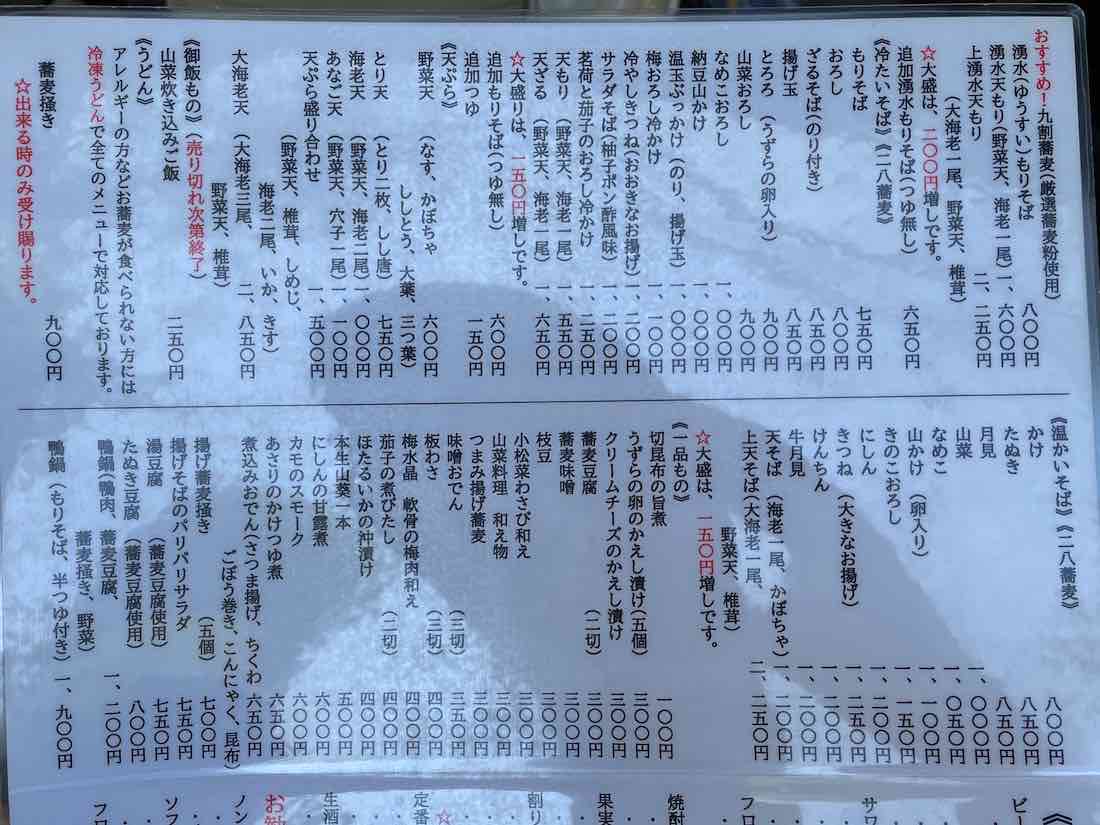 おすすめ！九割蕎麦(厳選蕎麦粉使用)
湧水(ゆうすい)もりそば 八〇〇円
湧水天もり(野菜天、海老一尾) 一、六〇〇円
上湧水天もり 二、二五〇円
(大海老一尾、野菜天、椎茸)
☆大盛は、二〇〇円増しです。
追加湧水もりそば(つゆ無し) 六五〇円
《冷たいそば》《二八蕎麦》
もりそば 七五〇円
おろし 八〇〇円
ざるそば(のり付き) 八五〇円
揚げ玉 八五〇円
とろろ (うずらの卵入り) 九〇〇円
山菜おろし 九〇〇円
なめこおろし 一、〇〇〇円
納豆山かけ 一、〇〇〇円
温玉ぶっかけ (のり、揚げ玉) 一、〇〇〇円
梅おろし冷かけ 一、一〇〇円
冷やしきつね(おおきなお揚げ) 一、二〇〇円
サラダそば(柚子ポン酢風味) 一、二〇〇円
茗荷と茄子のおろし冷かけ 一、二五〇円
天もり (野菜天、海老一尾) 一、五五〇円
天ざる (野菜天、海老一尾) 一、六五〇円
☆大盛りは、一五〇円増しです。
追加もりそば(つゆ無し) 六〇〇円
追加つゆ 一五〇円
《天ぷら》
野菜天 (なす、かぼちゃ 六〇〇円
ししとう、大葉、三つ葉)
とり天 (とり二枚、しし唐) 七五〇円
海老天 (野菜天、海老二尾) 一、〇〇〇円
あなご天 (野菜天、穴子一尾) 一、一〇〇円
天ぷら盛り合わせ 一、五〇〇円
(野菜天、椎茸、しめじ、
海老二尾、いか、きす)
大海老天 (大海老三尾、 二、八五〇円
野菜天、椎茸)
《御飯もの》(売り切れ次第終了)
山菜炊き込みご飯 二五〇円
《うどん》
アレルギーの方などお蕎麦が食べられない方には
冷凍うどんで全てのメニューで対応しております。
蕎麦掻き 九〇〇円
☆出来る時のみ受け賜ります。
《温かいそば》《二八蕎麦》
かけ 八〇〇円
たぬき 八五〇円
月見 八五〇円
山菜 一、〇〇〇円
なめこ 一、〇五〇円
山かけ (卵入り) 一、一〇〇円
きのこおろし 一、一五〇円
にしん 一、二〇〇円
きつね (大きなお揚げ) 一、一五〇円
けんちん 一、二〇〇円
牛月見 一、二〇〇円
天そば (海老一尾、かぼちゃ) 一、二〇〇円
上天そば(大海老一尾、 二、二五〇円
野菜天、椎茸)
☆大盛は、一五〇円増しです。
《一品もの》
切昆布の旨煮 一〇〇円
うずらの卵のかえし漬け(五個) 三〇〇円
クリームチーズのかえし漬け 三〇〇円
蕎麦豆腐 (二切) 三〇〇円
蕎麦味噌 三〇〇円
枝豆 三〇〇円
小松菜わさび和え 三〇〇円
山菜料理 和え物 三〇〇円
つまみ揚げ蕎麦 三〇〇円
味噌おでん (三切) 三五〇円
板わさ (三切) 四〇〇円
梅水晶 軟骨の梅肉和え 四〇〇円
茄子の煮びたし (二切) 四〇〇円
ほたるいかの沖漬け 四〇〇円
本生山葵一本 五〇〇円
にしんの甘露煮 六〇〇円
カモのスモーク 六〇〇円
あさりのかけつゆ煮 六五〇円
煮込みおでん(さつま揚げ、ちくわ 六五〇円
ごぼう巻き、こんにゃく、昆布)
揚げ蕎麦掻き (五個) 七〇〇円
揚げそばのパリパリサラダ 七五〇円
湯豆腐 (蕎麦豆腐使用) 七五〇円
たぬき豆腐 (蕎麦豆腐使用) 八〇〇円
鴨鍋(鴨肉、蕎麦豆腐、 一、二〇〇円
蕎麦掻き、野菜)
鴨鍋 (もりそば、半つゆ付き) 一、九〇〇円
ビー
サワ
フロ
焼酎
果実
割り
定番
☆
生酒
お勧
ノン
ソフ
フロ